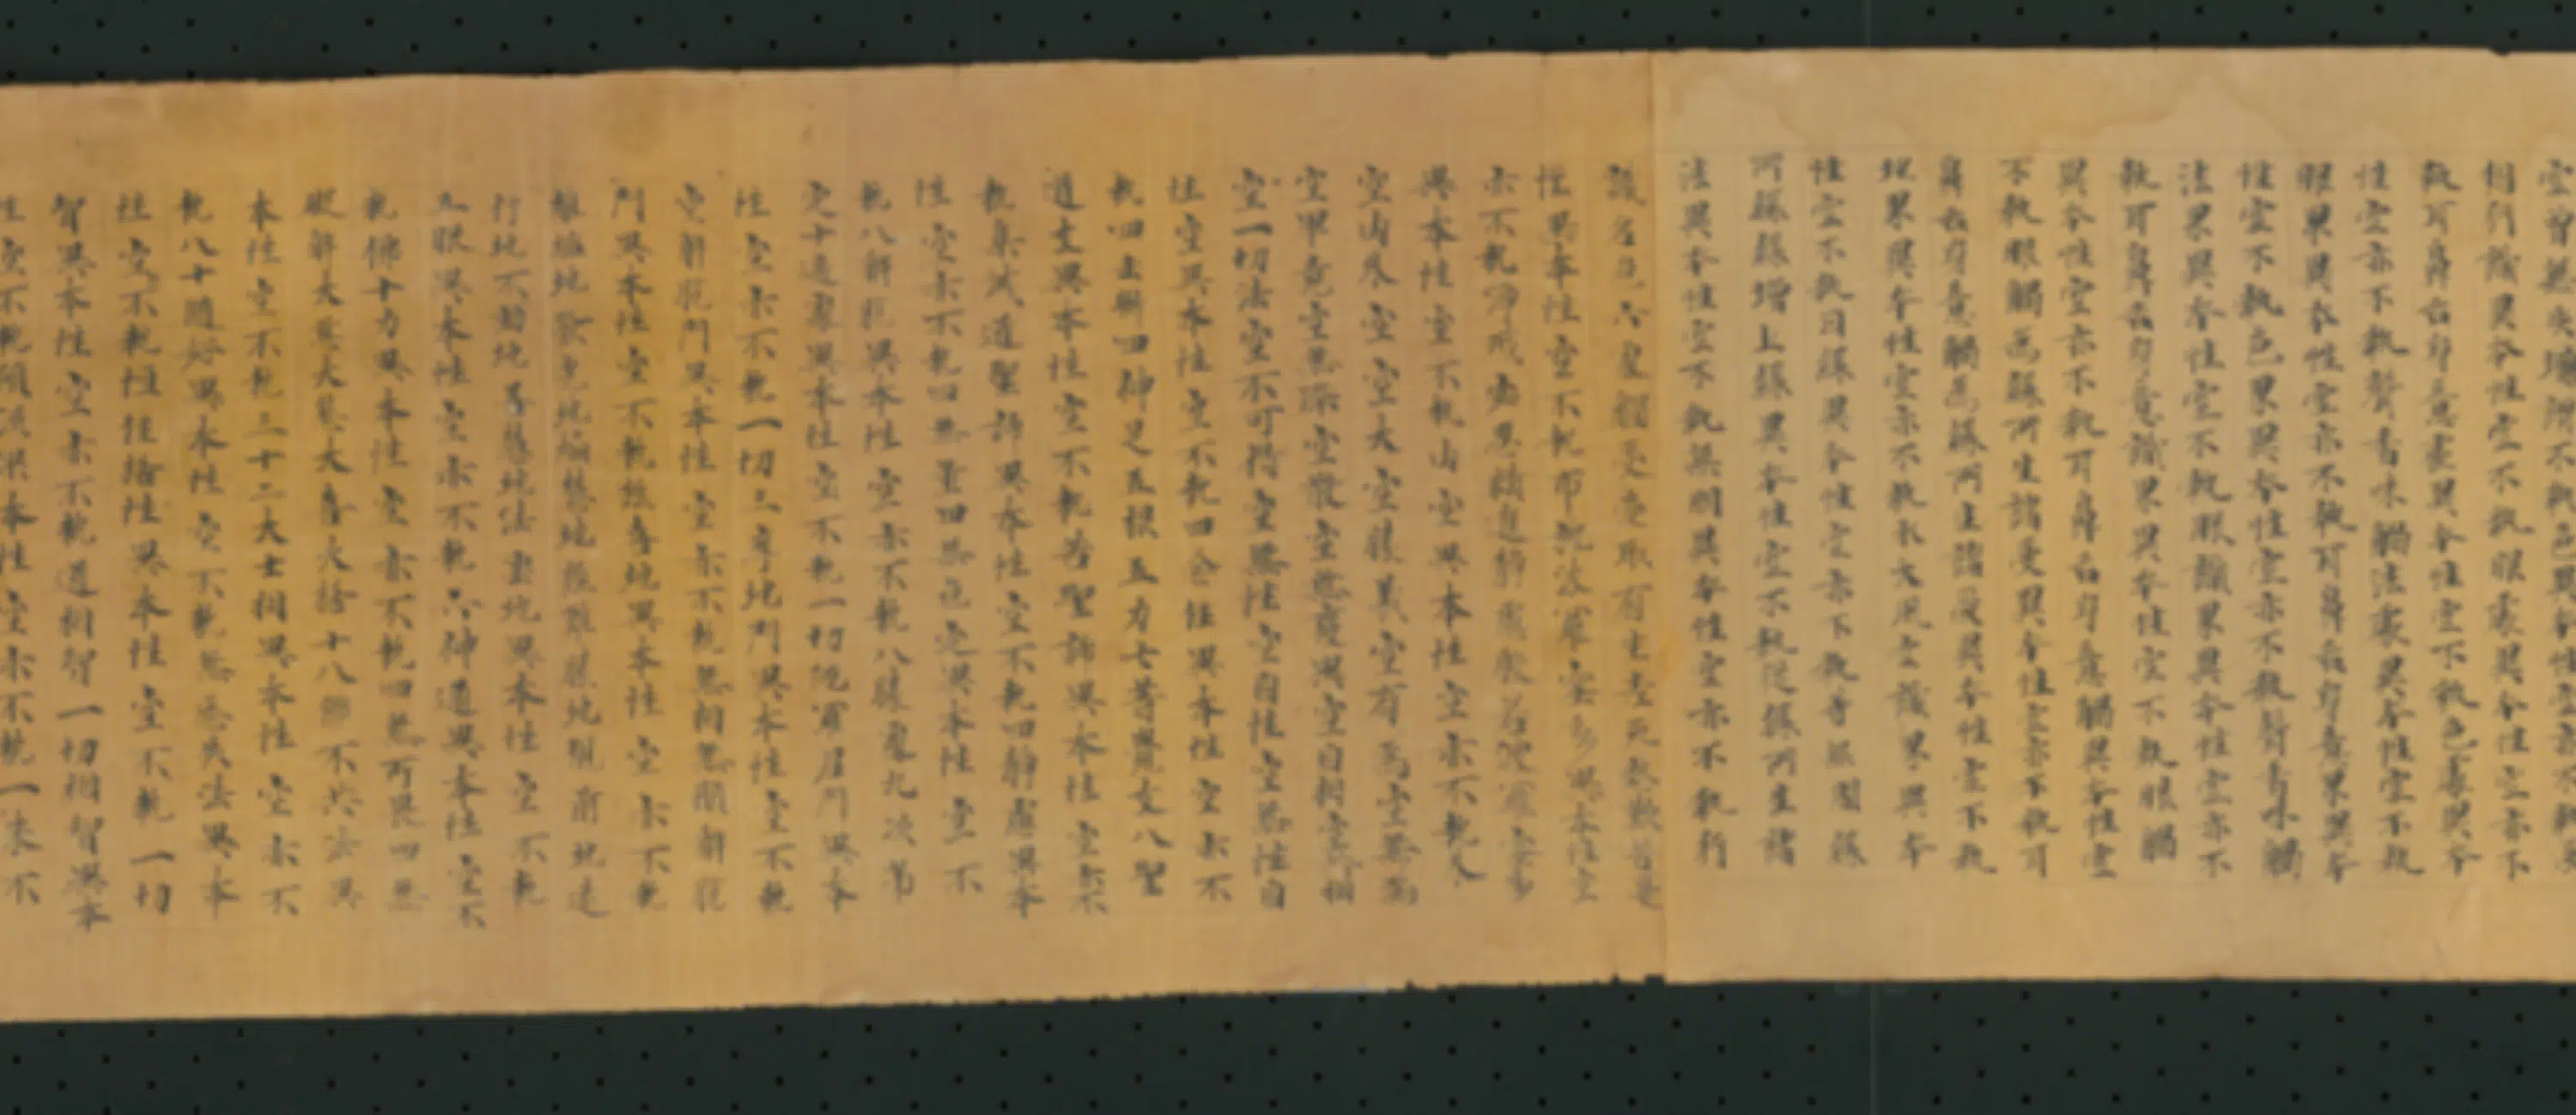 空曾無失壞謂不執色異本性空亦不執受
想行識異本性空不執眼處異本性空亦不
執耳鼻舌身意處異本性空不執色處異本
性空亦不執聲香味觸法處異本性空不執
眼界異本性空亦不執耳鼻舌身意界異本
性空不執色界異本性空亦不執聲香味觸
法界異本性空不執眼識界異本性空亦不
執耳鼻舌身意識界異本性空不執眼觸
異本性空亦不執耳鼻舌身意觸異本性空
不執眼觸為緣所生諸受異本性空亦不執耳
鼻舌身意觸為緣所生諸受異本性空不執
地界異本性空亦不執水火風空識界異本
性空不執因緣異本性空亦不執等無間緣
所緣緣增上緣異本性空不執從緣所生諸
法異本性空不執無明異本性空亦不執行
識名色六處觸受愛取有生老死愁歎苦憂
惱異本性空不執布施波羅蜜多異本性空
亦不執淨戒安忍精進靜慮般若波羅蜜多
異本性空不執內空異本性空亦不執外
空內外空空空大空勝義空有為空無為
空畢竟空無際空散空無變異空自相空共相
空一切法空不可得空無性空自性空無性自
性空異本性空不執四念住異本性空亦不
執四正斷四神足五根五力七等覺支八聖
道支異本性空不執苦聖諦異本性空亦不
執集滅道聖諦異本性空不執四靜慮異本
性空亦不執四無量四無色定異本性空不
執八解脫異本性空亦不執八勝處九次第
定十遍處異本性空不執一切陀羅尼門異本
性空亦不執一切三摩地門異本性空不執
空解脫門異本性空亦不執無相無願解脫
門異本性空不執極喜地異本性空亦不執
離垢地發光地焰慧地極難勝地現前地遠
行地不動地善慧地法雲地異本性空不執
五眼異本性空亦不執六神通異本性空不
執佛十力異本性空亦不執四無所畏四無
礙解大慈大悲大喜大捨十八佛不共法異
本性空不執三十二大士相異本性空亦不
執八十隨好異本性空不執無忘失法異本
性空不執恒住捨性異本性空不執一切
智異本性空亦不執道相智一切相智異本
性空不執預流果本性空亦不執一來不